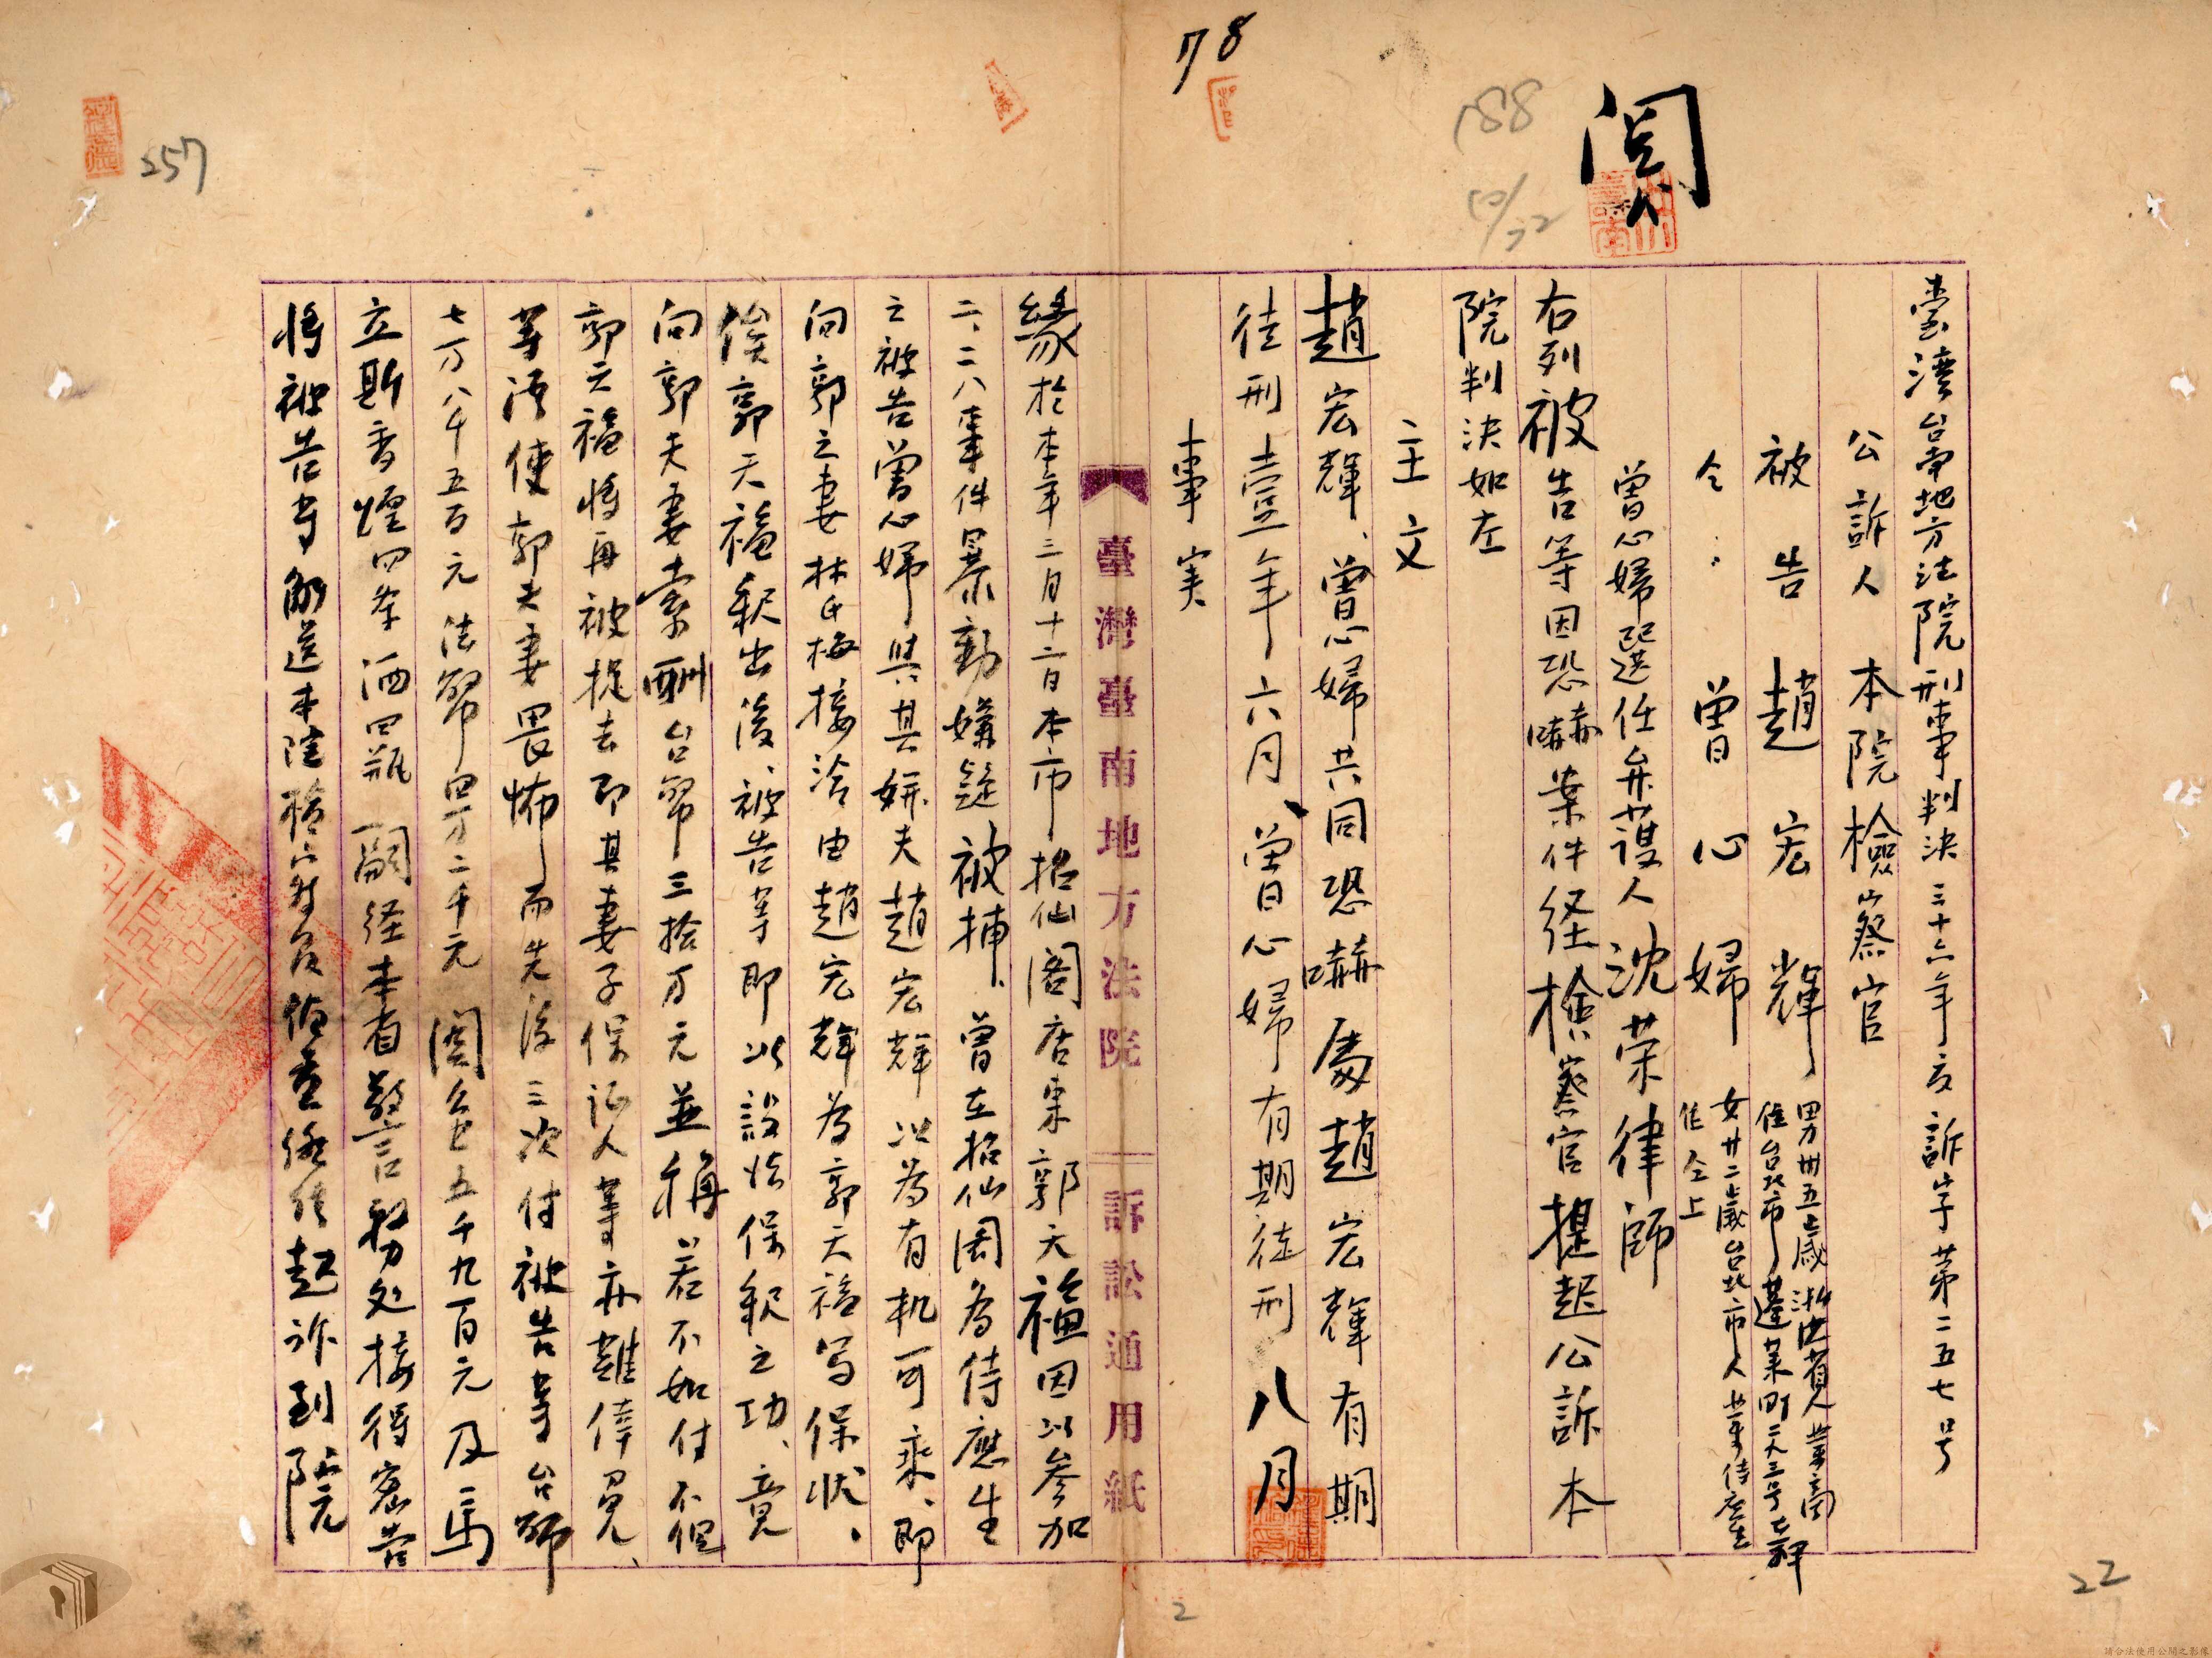 78
188
閲
257
臺灣台南地方法院刑事判決三十六年度訴字第二五七号
公訴人 本院檢察官
被告 趙宏輝 男卅五歲浙江省人業商
住台北市蓬萊町二大三号
仝 曾心婦 女廿二歲台北市人業侍應生
住仝上
曾心婦選任弁護人沈荣律師
右列被告等因恐嚇案件経檢察官提起公訴本
院判決如左
主文
趙宏輝、曾心婦共同恐嚇處趙宏輝有期
徒刑壹年六月、曾心婦有期徒刑八月
事実
臺灣臺南地方法院 訴訟通用紙
緣於本年三月十二日本市招仙閣店東郭天福因以參加
二、二八事件暴動嫌疑被捕、曾在招仙閣為侍應生
之被告曾心婦與其姘夫趙宏輝以為有机可乘、即
向郭之妻林氏梅接洽由趙宏輝為郭天福写保狀、
俟郭天福釈出後、被告等即以設法保釈之功、竟
向郭夫妻索酬台幣三拾万元並稱若不如付不但
郭天福將再被捉去即其妻子保証人等亦難倖免、
等语使郭夫妻畏怖而先後三次付被告等台幣
七万八千五百元法幣四万二千元 关金五千九百元及馬
立斯香煙四条酒四瓶嗣経本省警務処接得密告
將被告等解送本院檢察官偵查終結起訴到院
2
22
請合法使用公開之影像